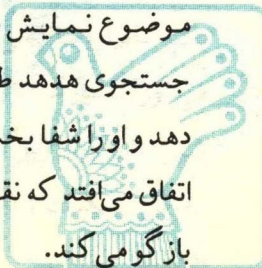 موضوع نمایش
جستجوی هدهد
دهد و اورا شفا بخ
اتفاق می‌افتد که نق
باز گو می کند.